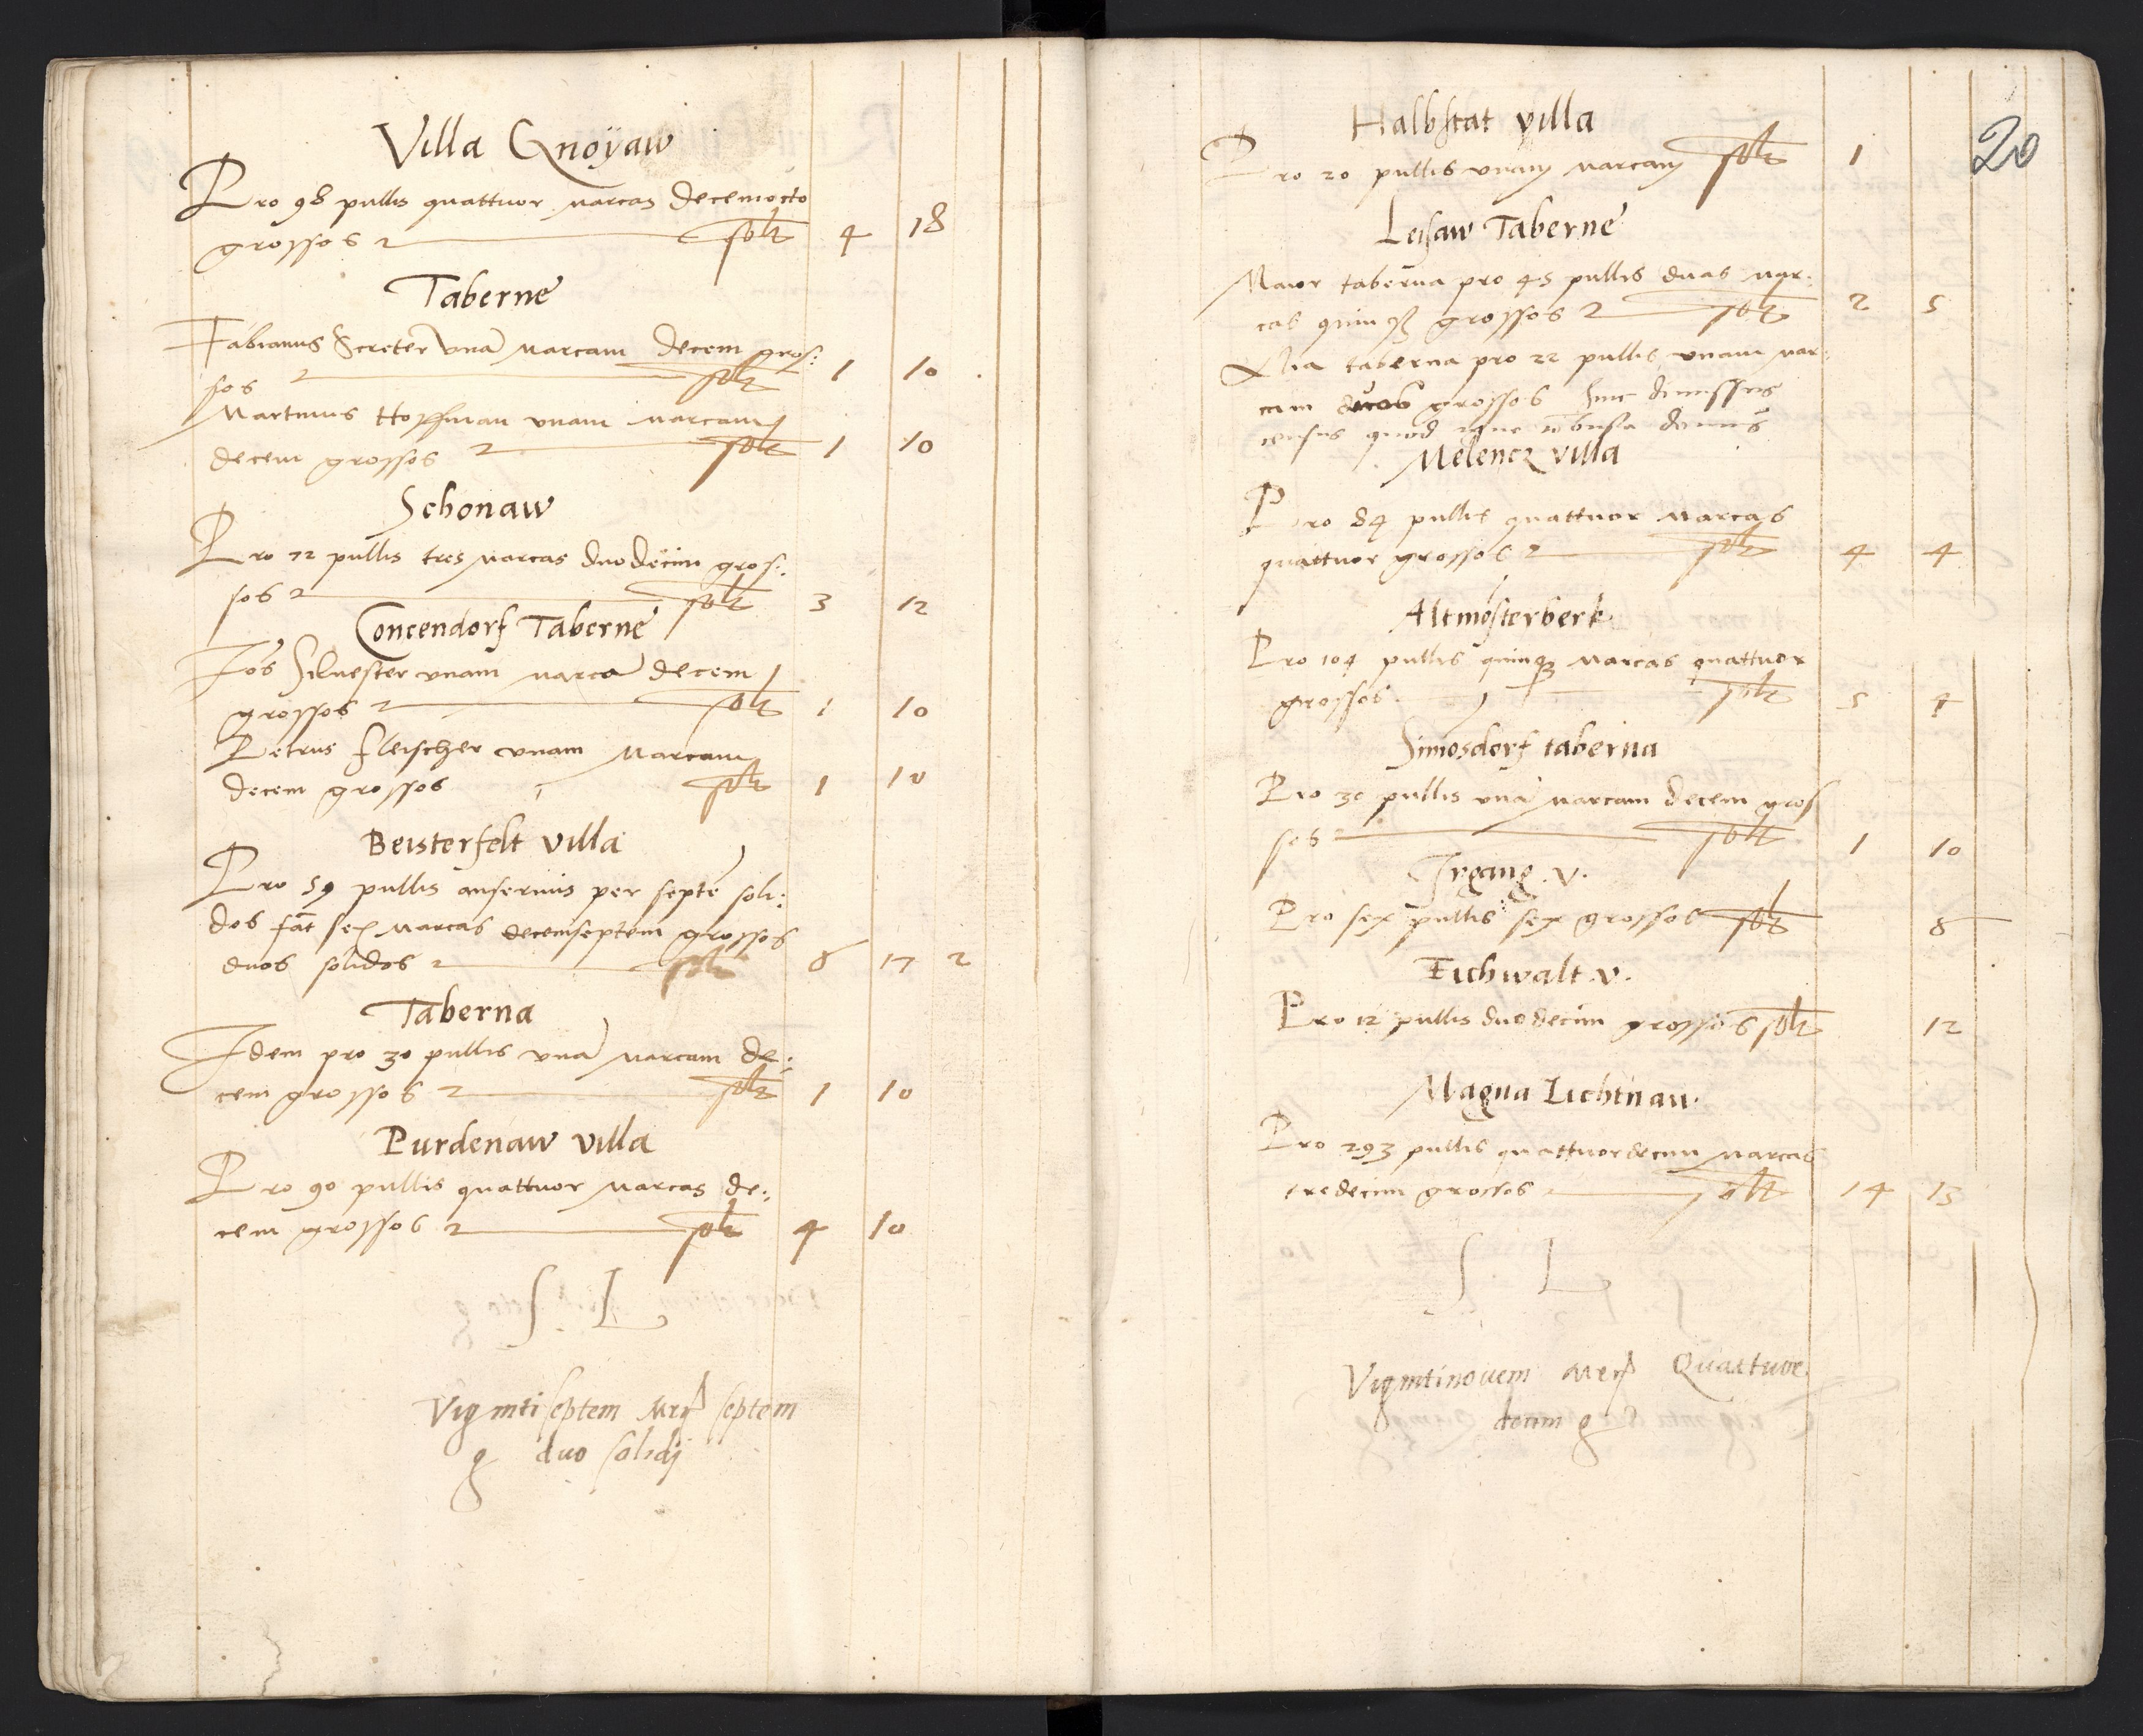 Villa Gnoÿaw
Pro 98 pullis quattuor marcas decemocto
grossos solt 4 18
Taberne
Fabianus Screter unā marcam decem gros:
sos solt 1 10
Martinus Hoffman unam marcam
decem grossos solt 1 10
Schonaw
Pro 72 pullis tres marcas duodecim gros:
sos solt 3 12
Concendorf Taberne
Jōs Siluester unam marcā decem
grossos solt 1 10
Petrus fleischer unam marcam
decem grossos solt 1 10
Beisterfelt villa
Pro 59 pullis anserinis per septē soli:
dos fāt sex marcas decemseptem grossos
duos solidos solt 6 17 2
Taberna
Idem pro 30 pullis unā marcam de:
cem grossos solt 1 10
Purdenaw villa
Pro 90 pullis quattuor marcas de:
cem grossos solt 4 10
S L
Viginti septem mrc septem
g duo solidj
20
Halbstat villa
Pro 20 pullis unam marcam solt 1
Leisaw Taberne
Maior taberna pro 45 pullis duas mar:
cas quinqȝ grossos solt 2 5
Alia taberna pro 22 pullis unam mar:
cam duos grossos hinc dimissus
census quod igne combusta domus
Melencz villa
Pro 84 pullis quattuor marcas
quattuor grossos solt 4 4
Altmösterberk
Pro 104 pullis quinqȝ marcas quattuor
grossos solt 5 4
Simosdorf taberna
Pro 30 pullis unā marcam decem gros
sos solt 1 10
Irgang .v.
Pro sex pullis sex grossos solt 6
Eichwalt .v.
Pro 12 pullis duodecim grossos solt 12
Magna Lichtnaw
Pro 293 pullis quattuordecim marcas
tredecim grossos solt 14 13
S L
Vigintinovem mrc Quattuor
decim g